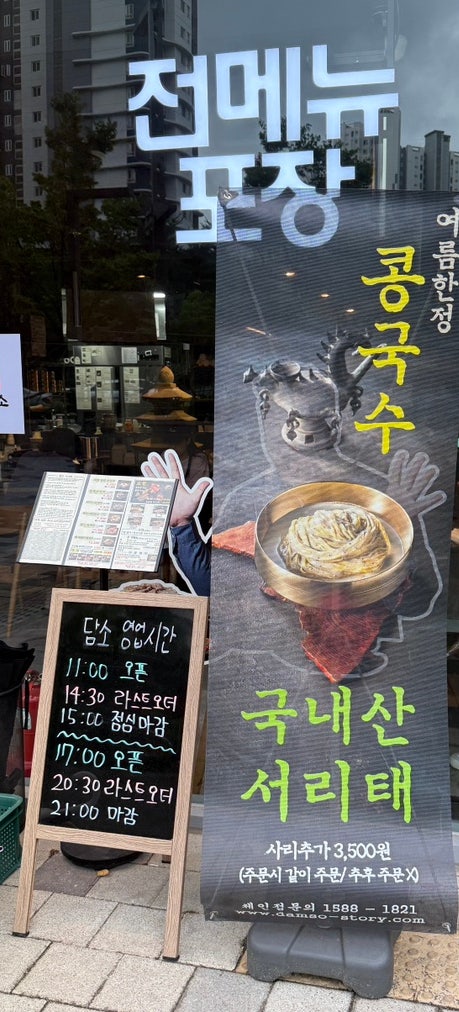 전메뉴
포장
여름한정
콩국수
국내산
서리태
사리추가 3,500원
(주문시 같이 주문/ 추후 주문 X)
체인점문의 1588 - 1821
www.damso-story.com
담소 영업시간
11:00 오픈
14:30 라스트오더
15:00 점심마감
17:00 오픈
20:30 라스트오더
21:00 마감
소